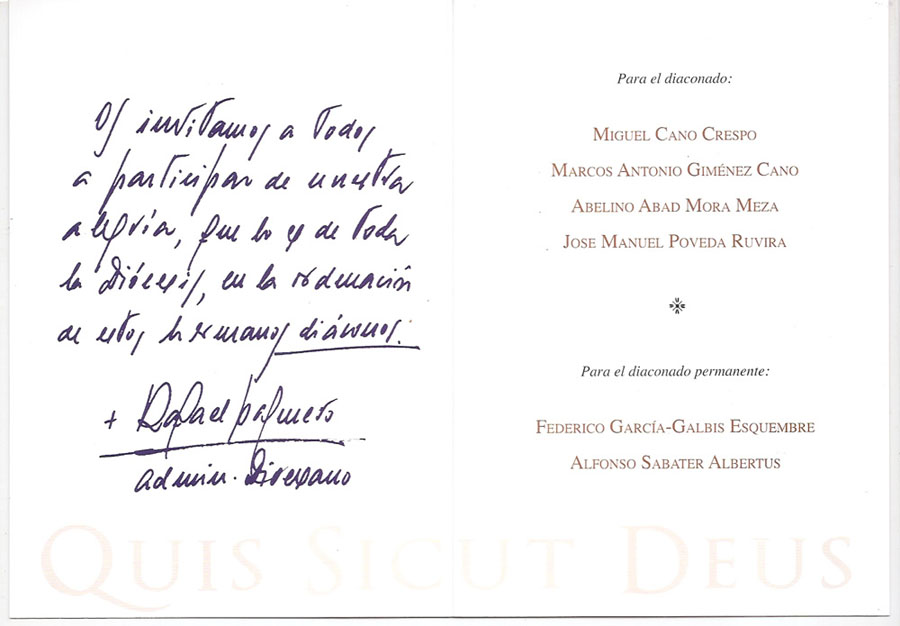 Os invitamos a todos
a participar de nuestra
alegría, que lo es de toda
la Diócesis, en la ordenación
de estos hermanos diáconos.
+ Rafael Palmero
Admin. Diocesano
Para el diaconado:
Miguel Cano Crespo
Marcos Antonio Giménez Cano
Abelino Abad Mora Meza
Jose Manuel Poveda Ruvira
Para el diaconado permanente:
Federico García-Galbis Esquembre
Alfonso Sabater Albertus
Quis Sicut Deus